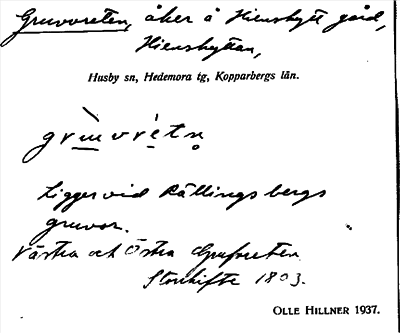 Gruvoreten, åker å Hienshytt gård,
Hienshyttan,
Husby sn, Hedemora tg, Kopparbergs län.
Ligger vid Rällingsbergs
gruvor.
Västra och Östra Grufvreten.
Storskifte 1803.
OLLE HILLNER 1937.